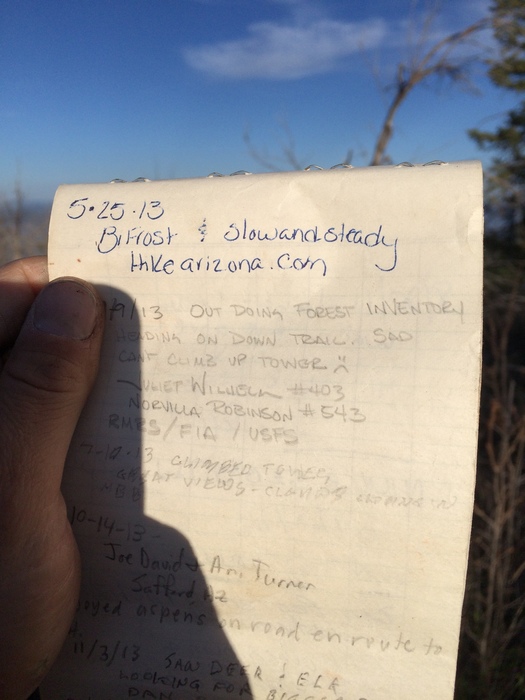 5.25.13
BiFrost & slowandsteady
Hikearizona.com
/9/13 OUT DOING FOREST INVENTORY
HEADING ON DOWN TRAIL. SAD
CANT CLIMB UP TOWER
JULIET WILHELM #403
NORVILLA ROBINSON #543
RMRS/FIA / USFS
CLIMBED TOWER,
GREAT VIEWS - CLOUDS
10-14-13-
Joe David & Ari Turner
Safford, AZ
joyed aspens on road en route to
11/3/13 SAW DEER & ELK
LOOKING FOR